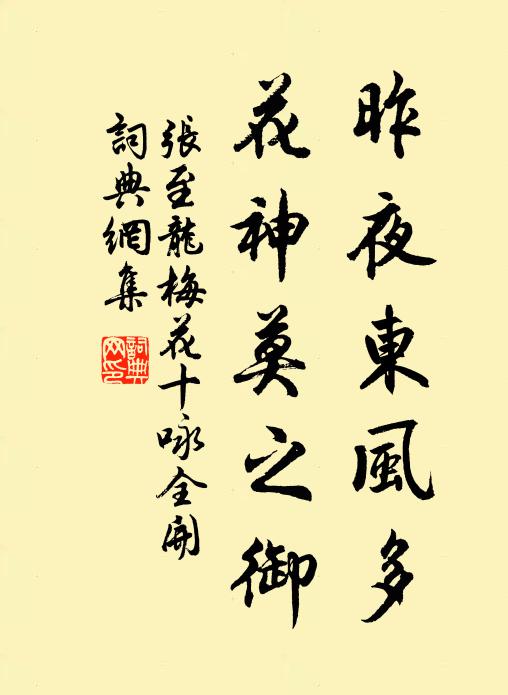 昨夜東風多
花神莫之御
張至龍梅花十咏全開
詞典網集
詞典網印